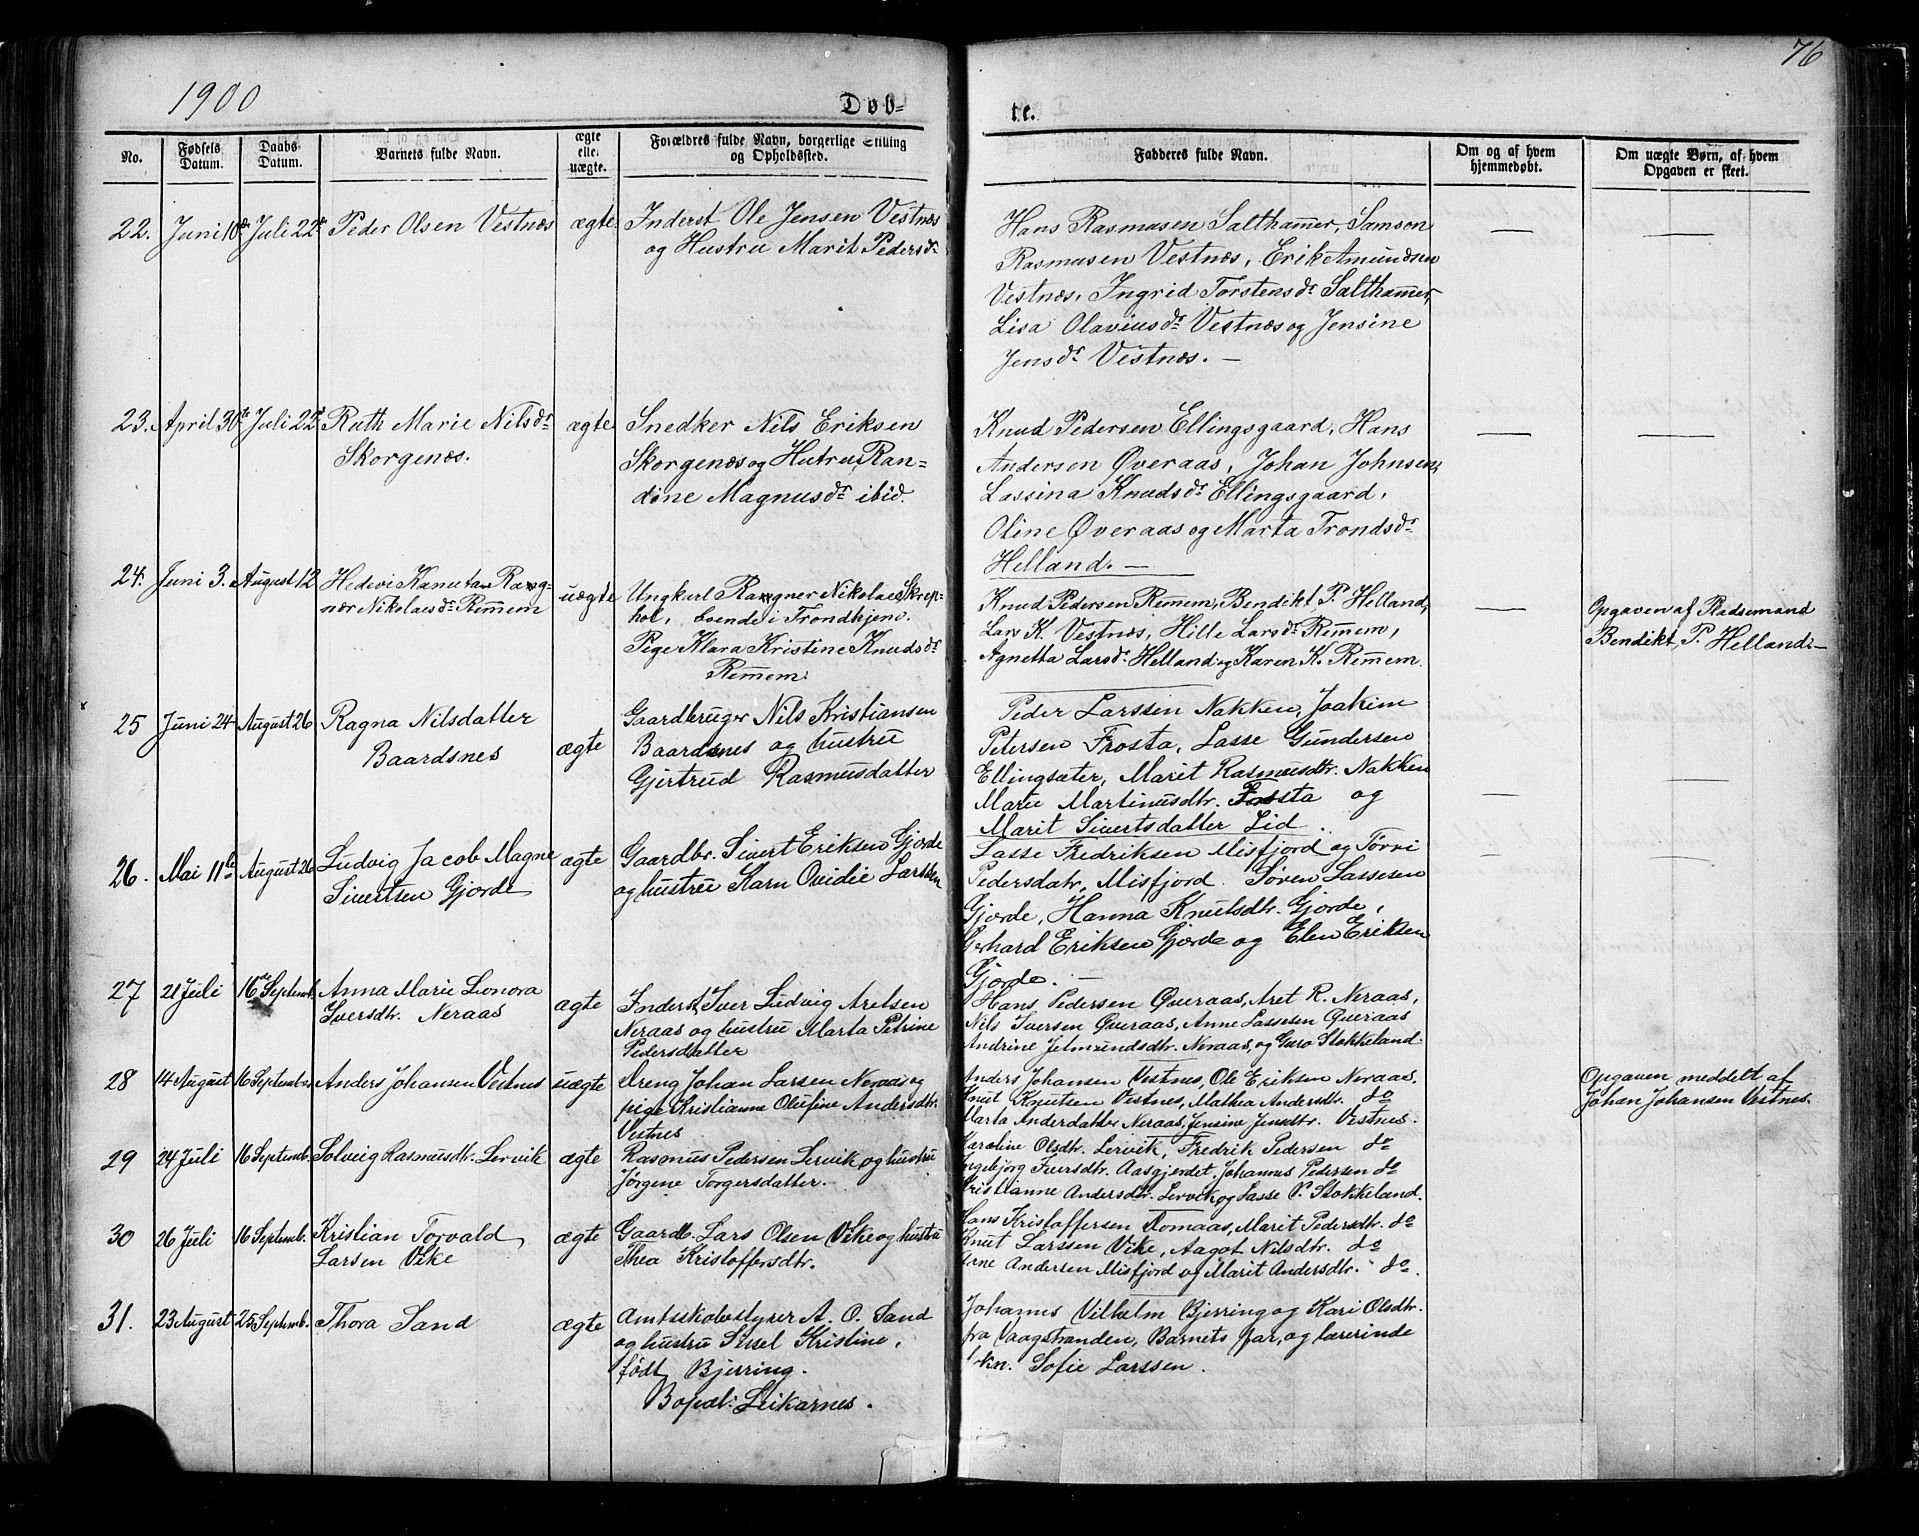 1900
Døb-
te.
76
No.
Fødsels Datum.
Daabs Datum.
Barnets fulde Navn.
ægte eller uægte.
Forældres fulde Navn, borgerlige Stilling og Opholdssted.
Fadderes fulde Navn.
Om og af hvem hjemmedøbt.
Om uægte Børn, af hvem Opgaven er skeet.
22. Juni 10de Juli 22de Peder Olsen Vestnæs ægte Inderst Ole Jensen Vestnæs
og Hustru Marit Pedersdr
Hans Rasmusen Salthammer, Samson
Rasmusen Vestnæs, Erik Amundsen
Vestnæs, Ingrid Torstensdr Salthammer,
Lisa Olaviusdr Vestnæs og Jensine
Jensdr Vestnæs. —
23. April 30te Juli 22de Ruth Marie Nilsdr
Skorgenæs.
ægte
Snedker Nils Eriksen
Skorgenæs og Hutru Ran=
dine Magnusdr ibid.
Knud Pedersen Ellingsgaard, Hans
Andersen Øveraas, Johan Johnsen,
Lassina Knudsdr Ellingsgaard,
Oline Øveraas og Marta Trondsdr
Helland. —
24. Juni 3. August 12 Hedevi Kanuta Rag-
nær Nikolaisdr Remmem
uægte
Ungkarl Ragner Nikolai Skrep-
hol, boende i Trondhjem.
Pige Klara Kristine Knudsdr
Remmem.
Knud Pedersen Remmem, Bendikt P. Helland,
Lars K. Vestnæs, Hille Larsdr Remmem,
Agnetta Larsdr Helland og Karen K. Remmem.
Opgaven af Pladsemand
Bendikt P. Helland. —
25 Juni 24 August 26 Ragna Nilsdatter
Baardsnes
ægte
Gaardbruger Nils Kristiansen
Baardsnes og hustru
Gjertrud Rasmusdatter
Peder Larssen Nakken, Joakim
Petersen Frosta, Lasse Gundersen
Ellingsæter, Marit Rasmusdtr. Nakken
Marie Martinusdtr. Frosta og
Marit Sivertsdatter Lid.
26. Mai 11te August 26 Ludvig Jacob Magne
Sivertsen Gjørde
ægte
Gaardbr. Sivert Eriksen Gjørde
og hustru Karn Ovidie Larssen
Lasse Fredriksen Misfjord og Torvi
Pedersdatr. Misfjord. Søren Lassesen
Gjørde, Hanna Knutsdtr. Gjørde,
Gerhard Eriksen Gjørde og Elen Eriksen
Gjørde. —
27 21 Juli 16de Septemb. Anna Marie Lonora
Iversdtr. Neraas
ægte
Inderst Iver Ludvig Aretsen
Neraas og hustru Marta Petrine
Pedersdatter
Hans Pedersen Øveraas, Aret R. Neraas,
Nils Iversen Øveraas, Anne Lassesen Øveraas
Andrine Jetmundsdtr. Neraas, og Guro Stokkeland.
28 14 August 16 September Anders Johansen Vestnes uægte Dreng Johan Larsen Neraas og
pige Kristianne Olufine Andersdtr.
Vestnes
Anders Johansen Vestnes, Ole Eriksen Neraas,
Knut Knutsen Vestnes, Mathea Andersdtr. do
Marta Anderdatter Neraas, Jensine Jensdtr. Vestnes.
Opgaven meddelt af
Johan Johansen Vestnes.
29 24 Juli 16 Septemb. Solveig Rasmusdtr. Lervik ægte Rasmus Pedersen Lervik og hustru
Jørgene Torgersdatter. —
Karoline Olsdtr. Lervik, Fredrik Pedersen do
Ingebjørg Iversdtr. Aasgjerdet, Johannes Pedersen do
Kristianne Andersdtr. Lervik og Lasse P. Stokkeland.
30 26 Juli 16 Septemb. Kristian Torvald
Larsen Vike
ægte
Gaardb. Lars Olsen Vike og hustru
Thea Kristoffersdtr.
Hans Kristoffersen Tomaas, Marit Pedersdtr. do
Knut Larssen Vike, Aagot Nilsdtr. do
Arne Andersen Misfjord og Marit Andersdtr. do.
31. 23 August 25 Septemb. Thora Sand ægte Amtsskolestyrer A. O. Sand
og hustru Sissel Kristine,
født Bjerring.
Bopæl: Leikarnes.
Johannes Vilhelm Bjerring og Kari Olsdtr.
fra Vaagstranden, Barnets far, og lærerinde
Sofie Larssen.